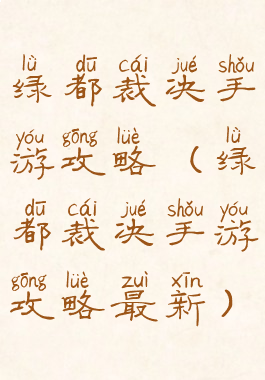 lǜ dū cái jué shǒu
绿都裁决手
yóu gōng lüè lǜ
游攻略（绿
dū cái jué shǒu yóu
都裁决手游
gōng lüè zuì xīn
攻略最新）